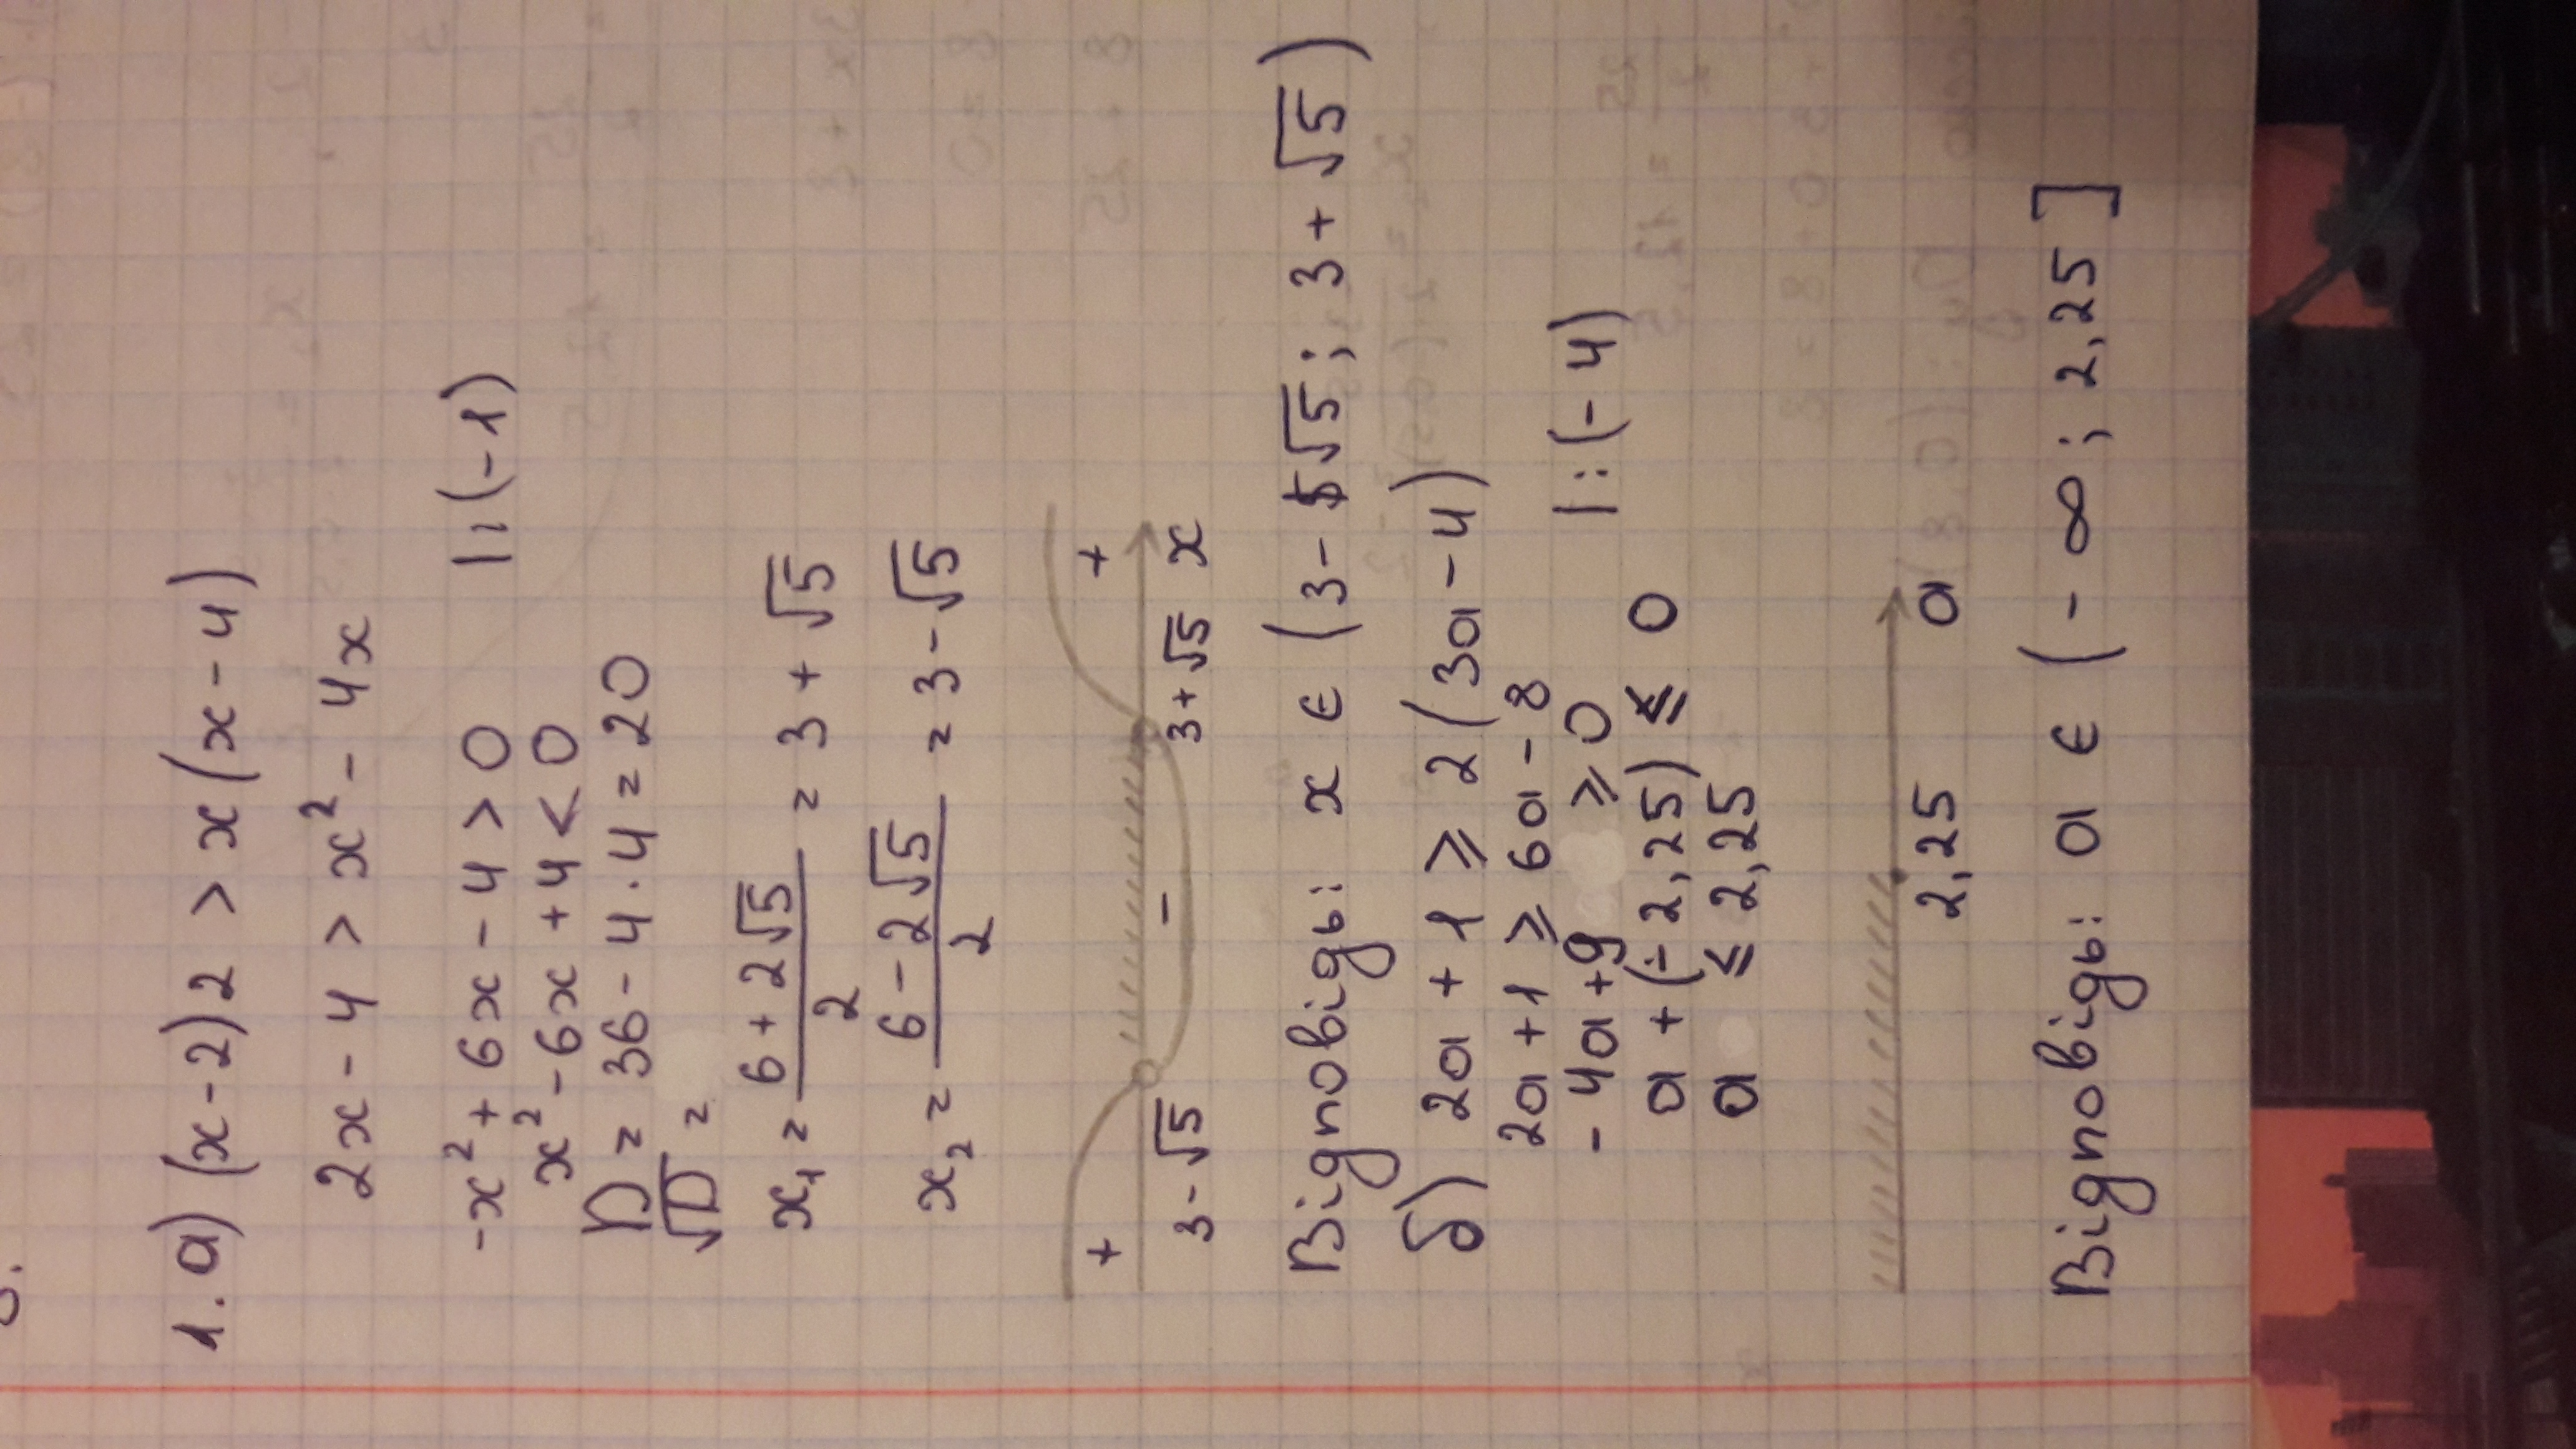 1. а) (x-2)2 > x(x-4)
2x - 4 > x² - 4x
-x² + 6x - 4 > 0 |: (-1)
x² - 6x + 4 < 0
D = 36 - 4 · 4 = 20
√D =
x₁ = (6 + 2√5)/2 = 3 + √5
x₂ = (6 - 2√5)/2 = 3 - √5
+ - +
3-√5 3+√5 x
Відповідь: x ∈ (3-√5; 3+√5)
б) 2a + 1 ⩾ 2(3a-4)
2a + 1 ⩾ 6a - 8
- 4a + 9 ⩾ 0 |: (- 4)
a + (-2,25) ⩽ 0
a ⩽ 2,25
2,25 a
Відповідь: a ∈ (- ∞; 2,25]